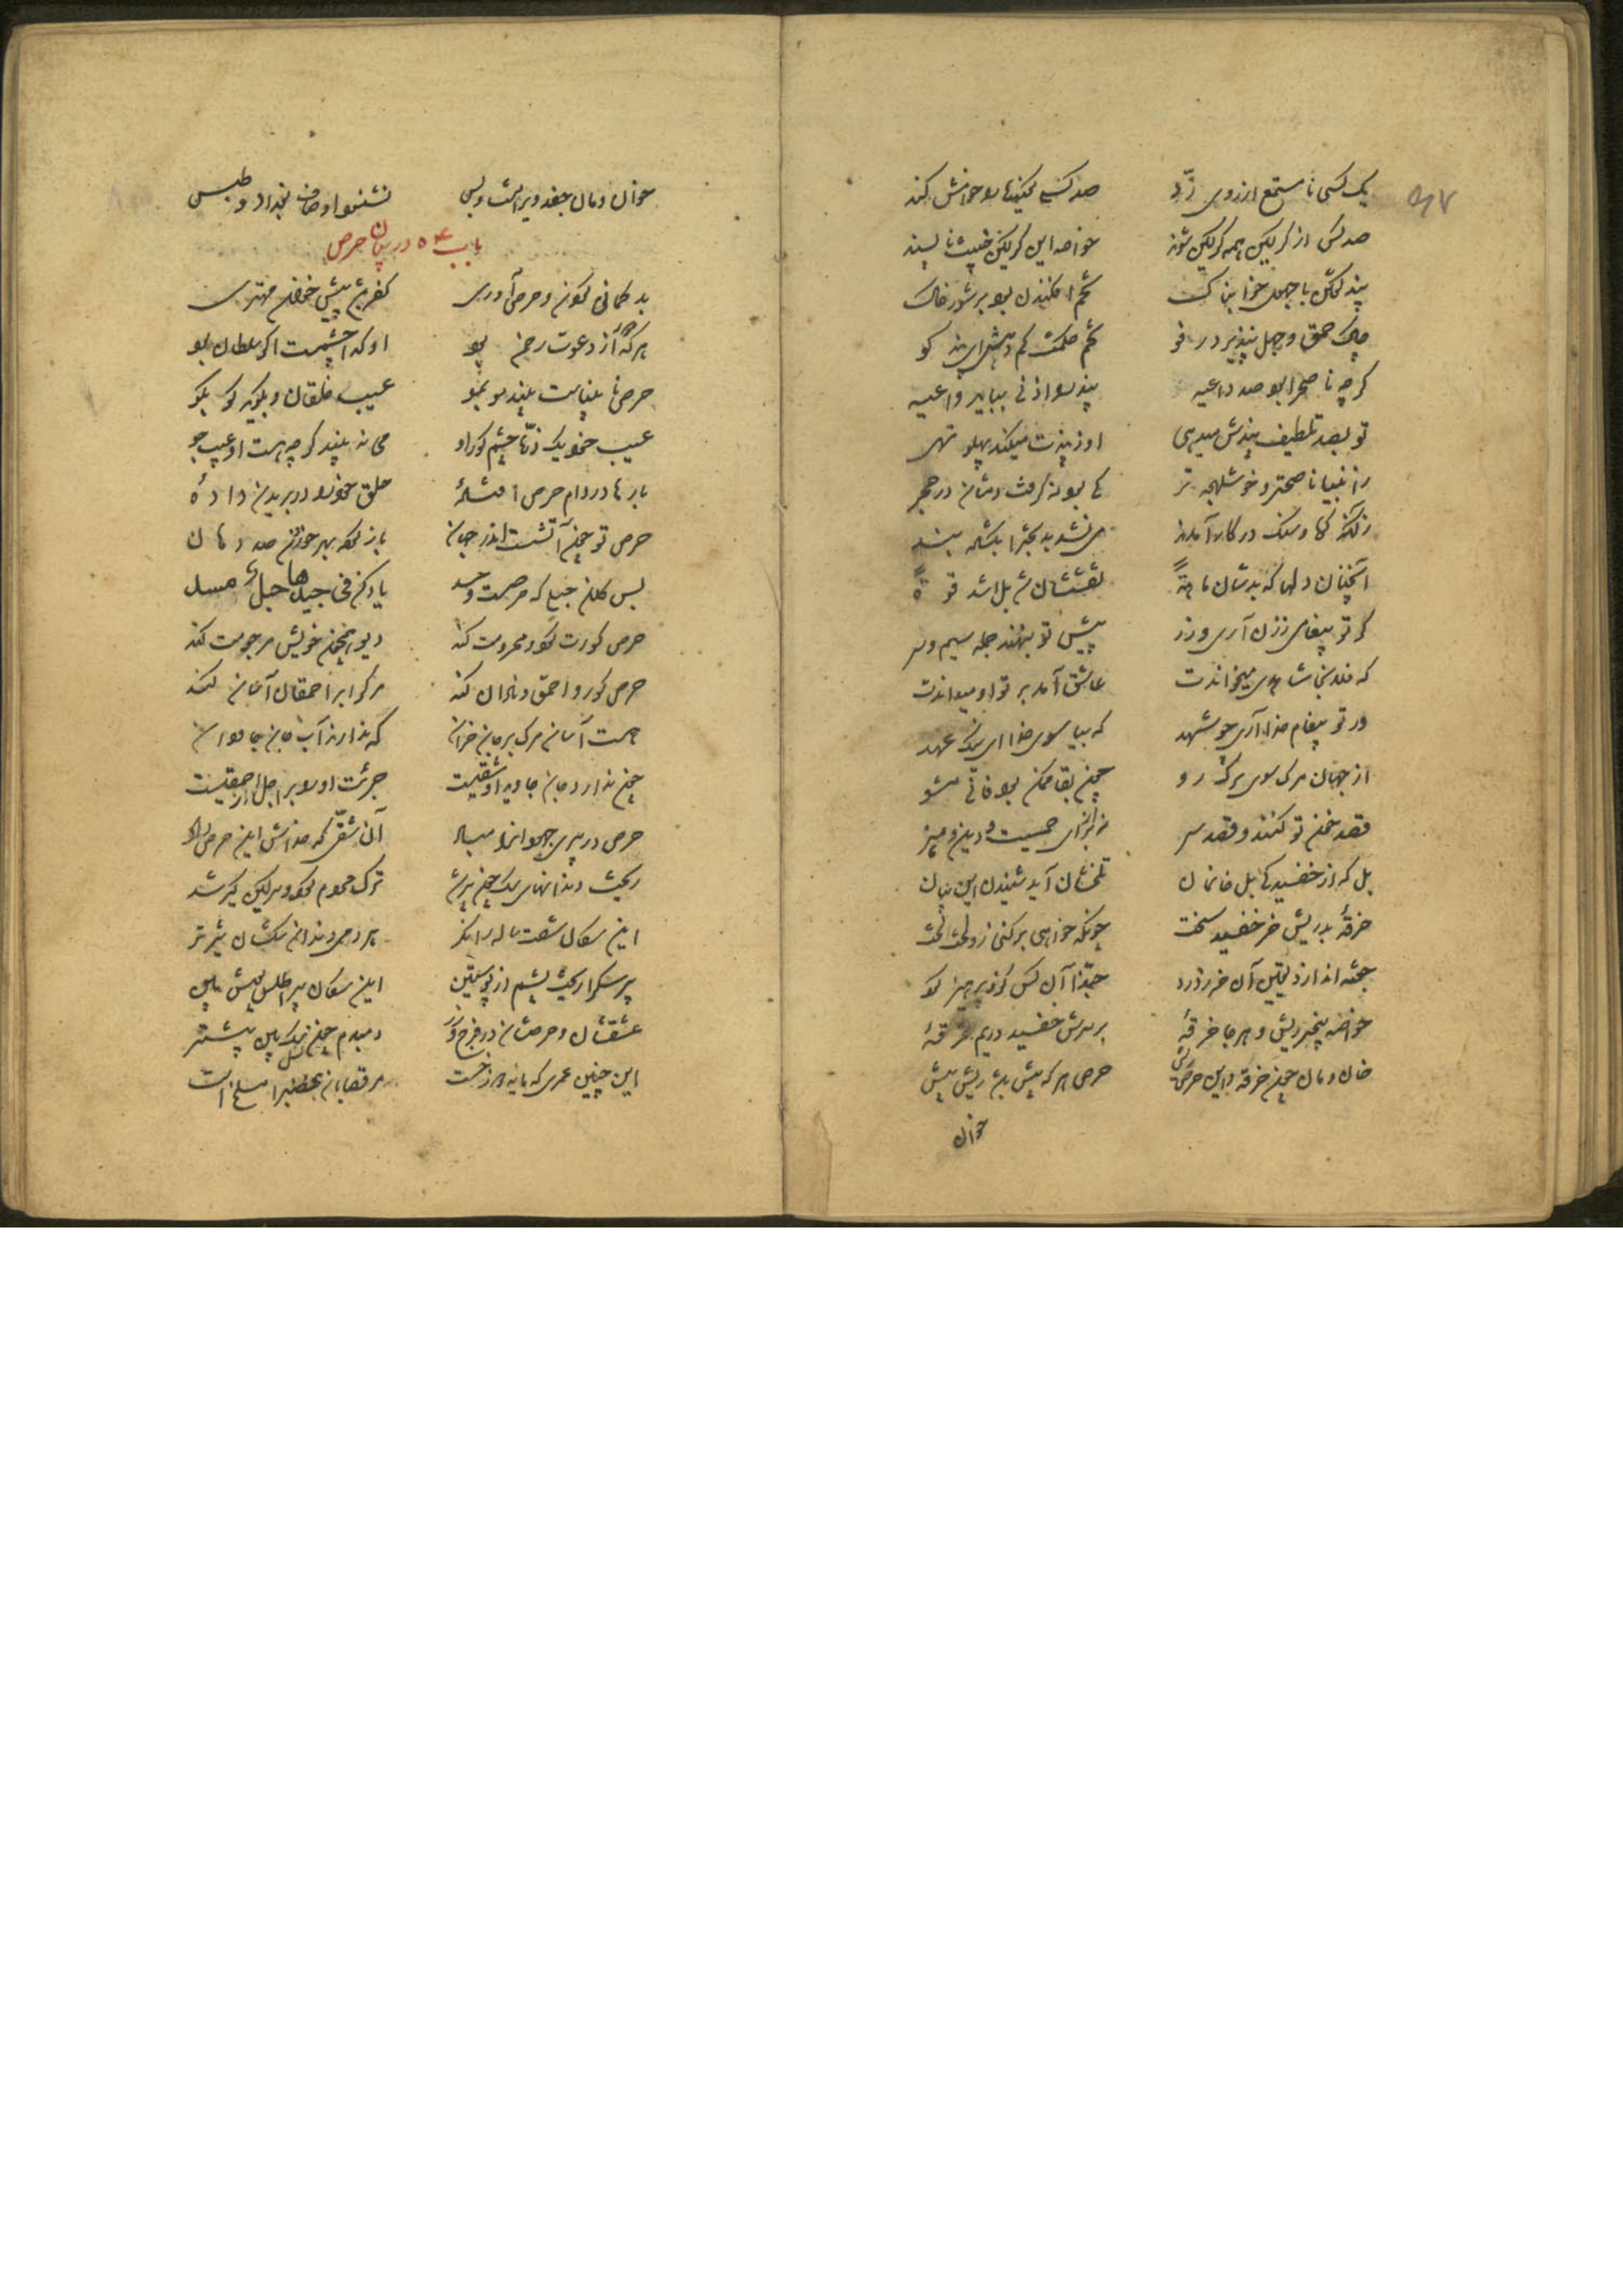 یک کسی نا مستمع از زوی رد صد کس گینده را خوانش کند
صد کس از کرگین همه کرگین شوند خواصه این کرگین خبیث نا پسند
پند کفتن با جهول خوابناک تخم افکندن بود بر شوره خاک
چاک حمق و جهل نپذیرد رفو تخم حکمت کم دهش ای پند کو
کرچه ناصح را بود صد داعیه پند را اذنی بباید واعیه
تو بصد تلطیف پندش میدهی او ز پندت میکند پهلو تهی
ز انبیا ناصحتر و خوش لهجه تر کی بود که کرفت دمشان در حجر
زانکه کوه و سنک در کار آمدند می نشد بدبخت را بکشاده بند
آنچنان دلها که بدشان ما و من نعتشان شد بل اشد قسوة
کر تو پیغام زن آری و زر پیش تو بنهند جمله سیم و سر
که فلان جا شاهدی میخواندت عاشق آمد بر تو او میداندت
ور تو پیغام خدا آری چو شهد که بیا سوی خدا ای نیک عهد
از جهان مرک سوی برک رو چون بقا ممکن بود فانی مشو
قصد خون تو کنند و قصد سر نه از برای حمیت دین و هنر
بل که از خفسیدکی بل خانمان تلخشان آید شنیدن این بیان
خرقهٔ بر ریش خر خفسید سخت چونکه خواهی برکنی زو لخت لخت
جفته اندازد یقین آن خر ز درد حبذا آن کس کزو پرهیز کرد
خواصه پنجه ریش و هر جا خرقهٔ بر سرش خفسیده در نم غرقهٔ
خان و مان چون خرقه و این حرص ریش حرص هر که بیش باشد ریش بیش
خوان
خوان و مان جغد ویرانست و بس نشنود اوصاف بغداد و طبس
باب ۵۴ در بیان حرص
بد کمانی کردن و حرص آوری کفر باشد پیش خوان مهتری
هر که از دعوت رحمن بود او کدا چشمست اکر سلطان بود
حرص نابیناست بیند مو بمو عیب خلقان و بکوید کو بکو
عیب خود یک ذره چشم کور او می نه بیند کرچه هست او عیب جو
بارها در دام حرص افتادهٔ حلق خود را در بریدن دادهٔ
حرص تو چون آتشست اندر جهان باز کرده بهر خوردن صد دهان
پس کلان جیع که حرصست و حسد یاد کن فی جیدها حبل مسد
حرص کورت کرد و محرومت کند دیو همچون خویش مرجومت کند
حرص کور و احمق و نادان کند مرک را بر احمقان آسان کند
هست آسان مرک بر جان خران که ندارند آب جان جاودان
چون ندارد جان جاوید او شقیست جرئت او بر اجل از احمقیست
حرص در پیری جهودان را مباد آن شقی که خداش این حرص داد
ریخت دندانهای سک چون پیر شد ترک مردم کرد و سرکین کیر شد
این سکان شصت ساله را نکر هر دمی دندان سکشان تیز تر
پیر سک را ریخت پشم از پوستین این سکان پیر اطلس پوش بین
عشقشان و حرصشان در فرج و زر دمبدم چون نسل سک بین بیشتر
این چنین عمری که مایه دوزخست مر قصابان غضب را مسلخ است